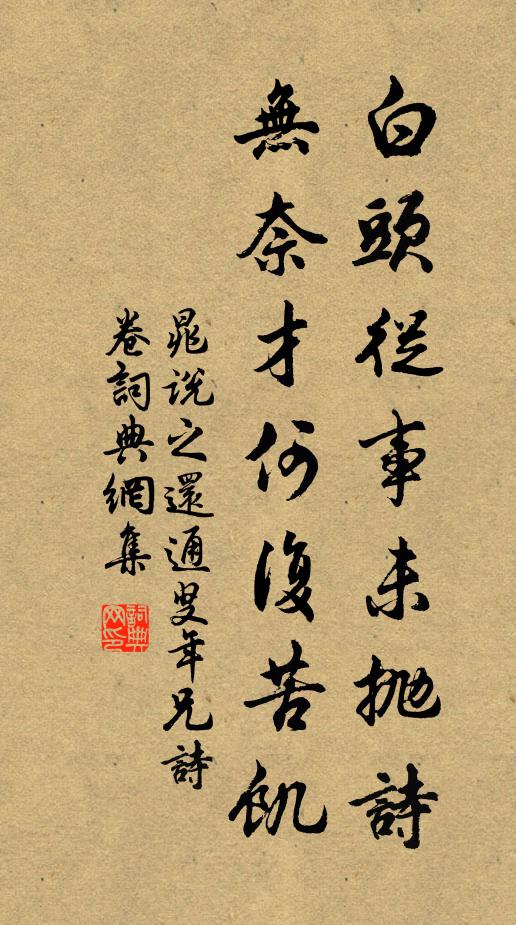 白頭從事未拋詩
無奈才何復苦飢
晁說之還通叟年兄詩
卷詞典網集
詞典
网印